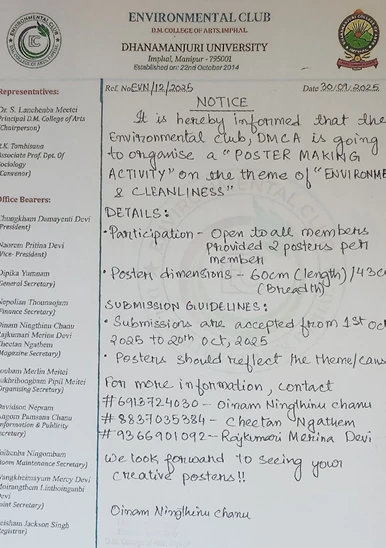 ENVIRONMENTAL CLUB
D.M. COLLEGE OF ARTS, IMPHAL
DHANAMANJURI UNIVERSITY
Imphal, Manipur -795001
Established on: 22nd October 2014
Representatives:
Dr. S. Lanchenba Meetei
Principal D.M. College of Arts
(Chairperson)
R.K. Tombisana
Associate Prof. Dpt. Of
Sociology
(Convenor)
Office Bearers:
Chungkham Damayenti Devi
(President)
Naorem Pritina Devi
(Vice- President)
Dipika Yumnam
(General Secretary)
Nepolian Thounaojam
(Finance Secretary)
Oinam Ningthinu Chanu
Rajkumari Merina Devi
Cheetan Ngathem
(Magazine Secretary)
(Organising Secretary)
Davidson Nepram
(Information & Publicity
Secretary)
(Room Maintenance Secretary)
Devi
(Joint Secretary)
Leisham Jackson Singh
(Registrar)
Ref. No EVN/12/2025
Date 30/09/2025
NOTICE
It is hereby informed that the
Environmental club, DMCA is going
to organise a "POSTER MAKING
ACTIVITY" on the theme of "ENVIRONME
& CLEANLINESS"
DETAILS:
• Participation - Open to all members
Provided 2 posters per
member
• Poster dimensions - 60cm (length) / 43c
(Breadth)
SUBMISSION GUIDELINES:
• Submissions are accepted from 1st Oc
2025 to 20th Oct, 2025
• Posters should reflect the theme/caus
For more information, contact
# 6913724030 - Oinam Ningthinu chanu
# 8837035384 - Cheetan Ngathem
# 9366901092 - Rajkumari Merina Devi
We look forward to seeing your
creative posters!!
Oinam Ningthinu chanu